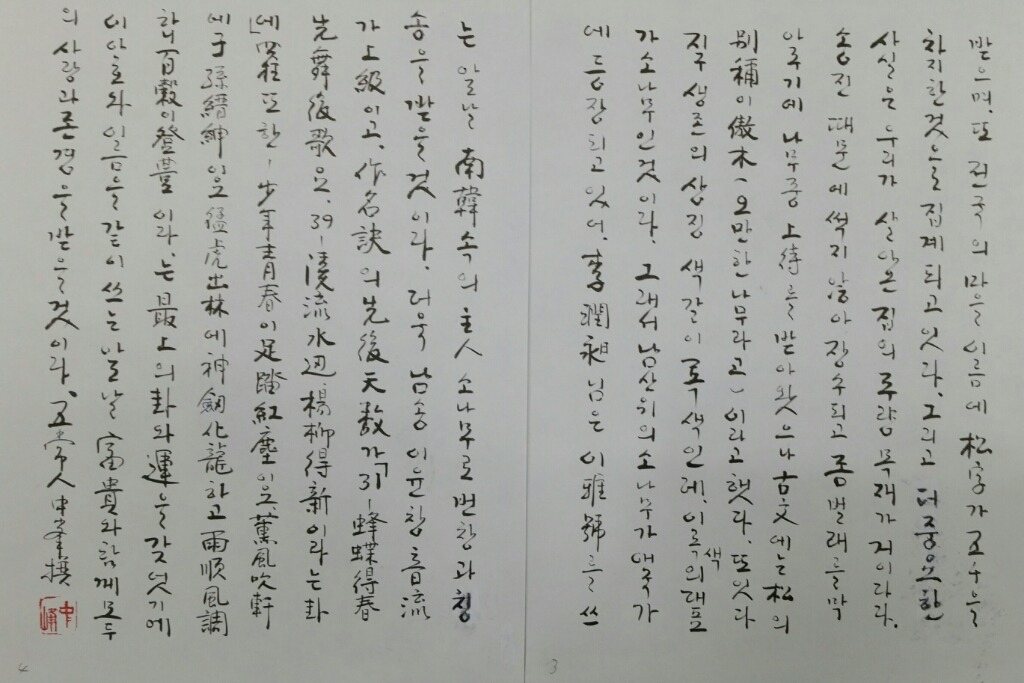 받으며, 또 전국의 마을 이름에 松字가 고수을
차지한것으로 집계되고 있다. 그리고 더 중요한
사실은 우리가 살아온 집의 주량 목재가 거이다다.
송진 때문에 썩지 않아 장수되고 좀벌레를 막
아주기에 나무중 上待를 받아왓으나 古文에는 松의
別稱이 傲木(오만한 나무라고)이라고 했다. 또 있다
지구 생존의 상징 색갈이 록색인데, 이 록색의 대표
가 소나무인것이라. 그래서 남산위의 소나무가 애국가
에 등장되고 있어. 李潤昶 님은 이 雅號를 쓰
는 알날 南韓속의 主人 소나무로 번창과 칭
송을 받을 것이다. 더욱 남송 이윤창 音流
가 上級이고, 作名訣의 先後天数가「31-蜂蝶得春
先舞後歌요, 39-淩流水辺 楊柳得新이라는 卦
에 羅또한- 少年青春이 足踏紅塵이요, 薰風吹軒
에 子孫縉紳이요 猛虎出林에 神劒化龍하고 雨順風調
하니 百穀이 登豊이라.」는 最上의 卦와 運을 갖엇기에
이 아호와 이름을 같이 쓰는 날날 富貴와 함께 모두
의 사랑과 존경을 받을 것이다. 五常人 中峯 撰
3
4